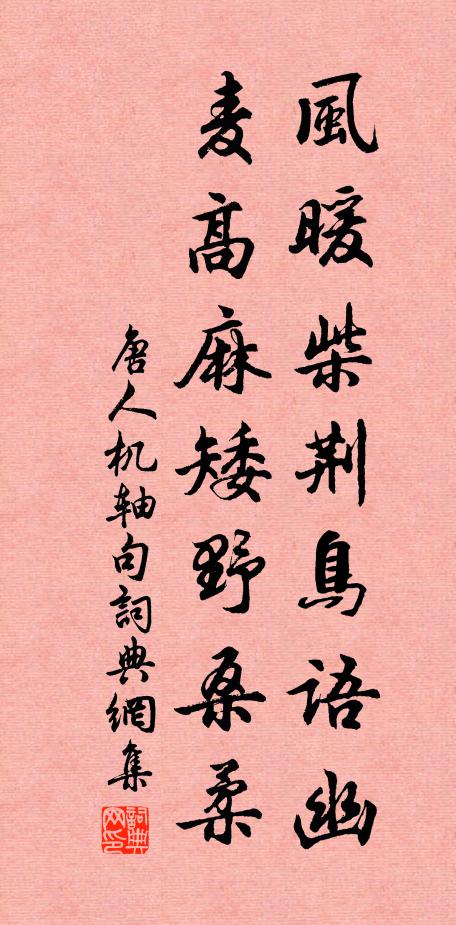 風暖柴荆鳥語幽
麦高麻矮野桑柔
唐人机軸句詞典網集
詞典網印